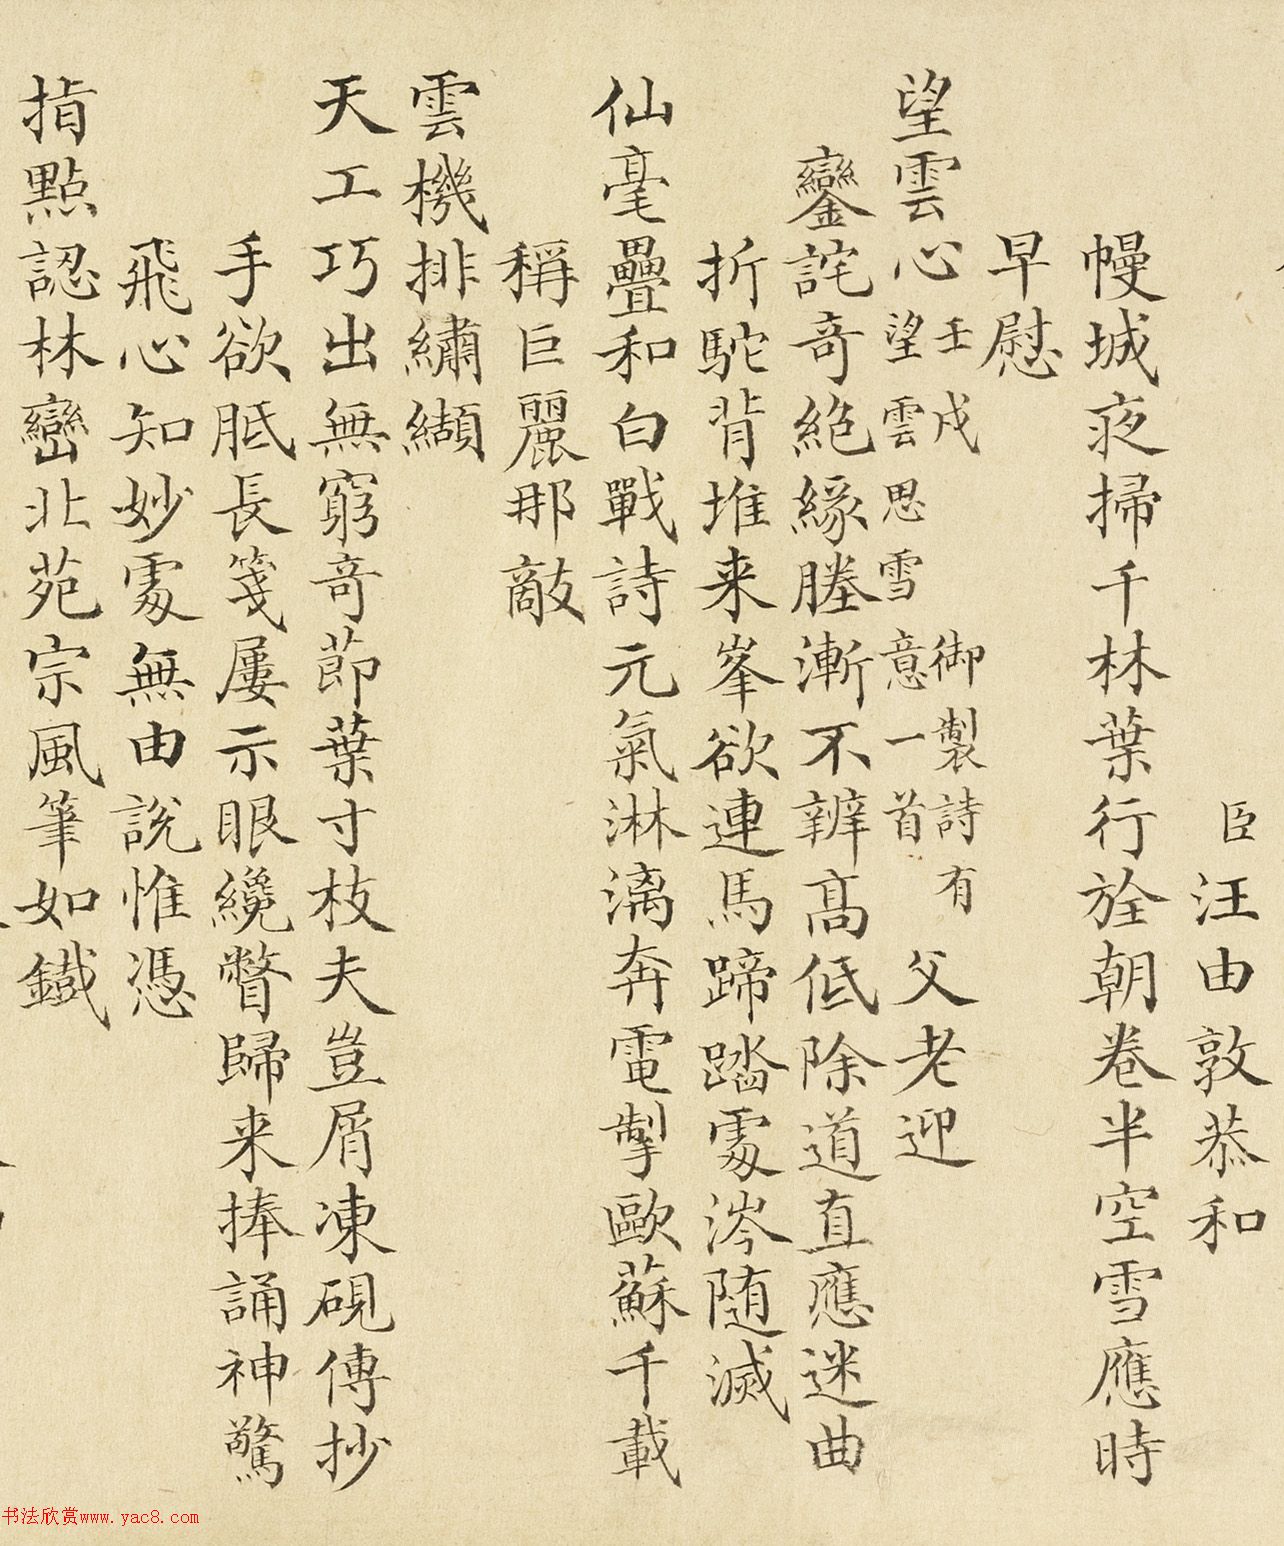 臣汪由敦恭和
幔城夜掃千林葉行旌朝卷半空雪應時
早慰
望雲心
壬戌御製詩有
望雲思雪意一首
父老迎
鑾詫奇絕緣塍漸不辨高低除道直應迷曲
折駝背堆来峯欲連馬蹄踏處涔随滅
仙毫疊和白戰詩元氣淋漓奔電掣歐蘇千載
稱巨麗那敵
雲機排繡纈
天工巧出無窮奇節葉寸枝夫豈屑凍硯傳抄
手欲胝長箋屢示眼纔瞥歸来捧誦神驚
飛心知妙處無由說惟憑
指點認林巒北苑宗風筆如鐵
书法欣赏www.yac8.com